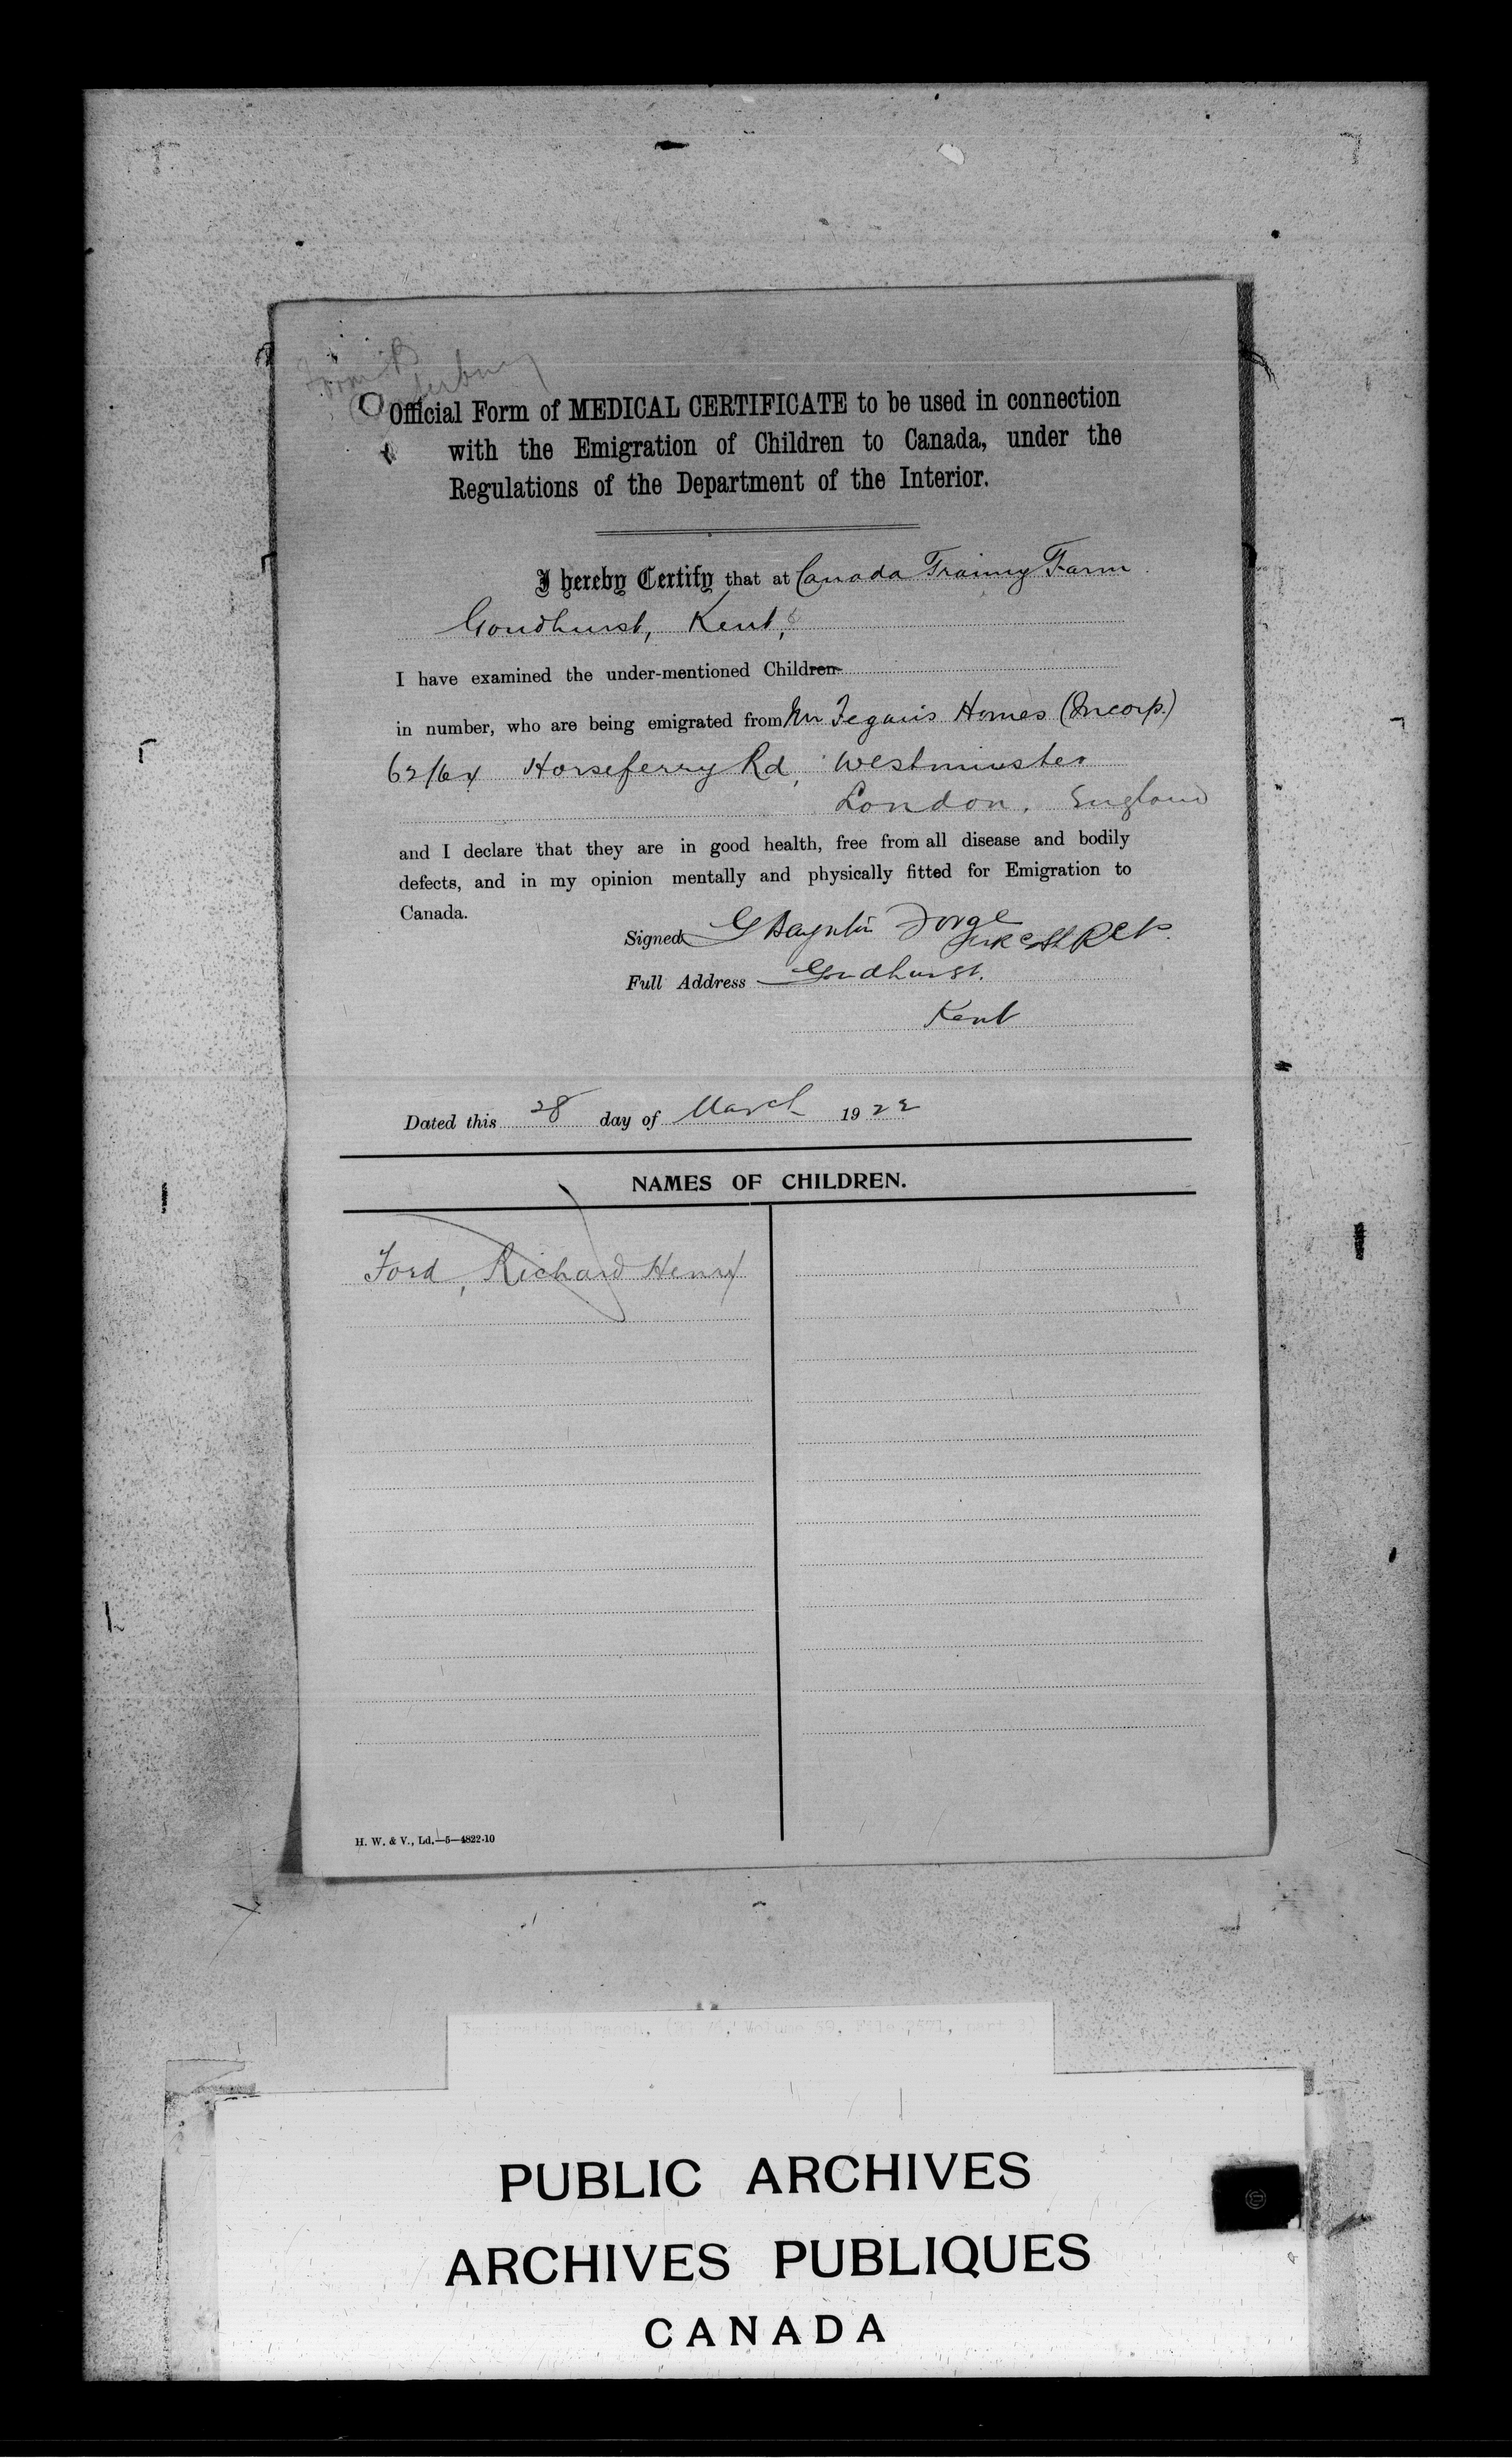 Official Form of MEDICAL CERTIFICATE to be used in connection
with the Emigration of Children to Canada, under the
Regulations of the Department of the Interior.
I hereby Certify that at Canada Training Farm
Goudhurst, Kent,
I have examined the under-mentioned Children
in number, who are being emigrated from Mr Fegan's Homes (Incorp.)
62/64 Horseferry Rd, Westminster
London, England
and I declare that they are in good health, free from all disease and bodily
defects, and in my opinion mentally and physically fitted for Emigration to
Canada.
Signed
Full Address Goudhurst.
Kent
Dated this 28 day of March 1922
NAMES OF CHILDREN.
Ford, Richard Henry
H. W. & V., Ld.—5—4822-10
PUBLIC ARCHIVES
ARCHIVES PUBLIQUES
CANADA